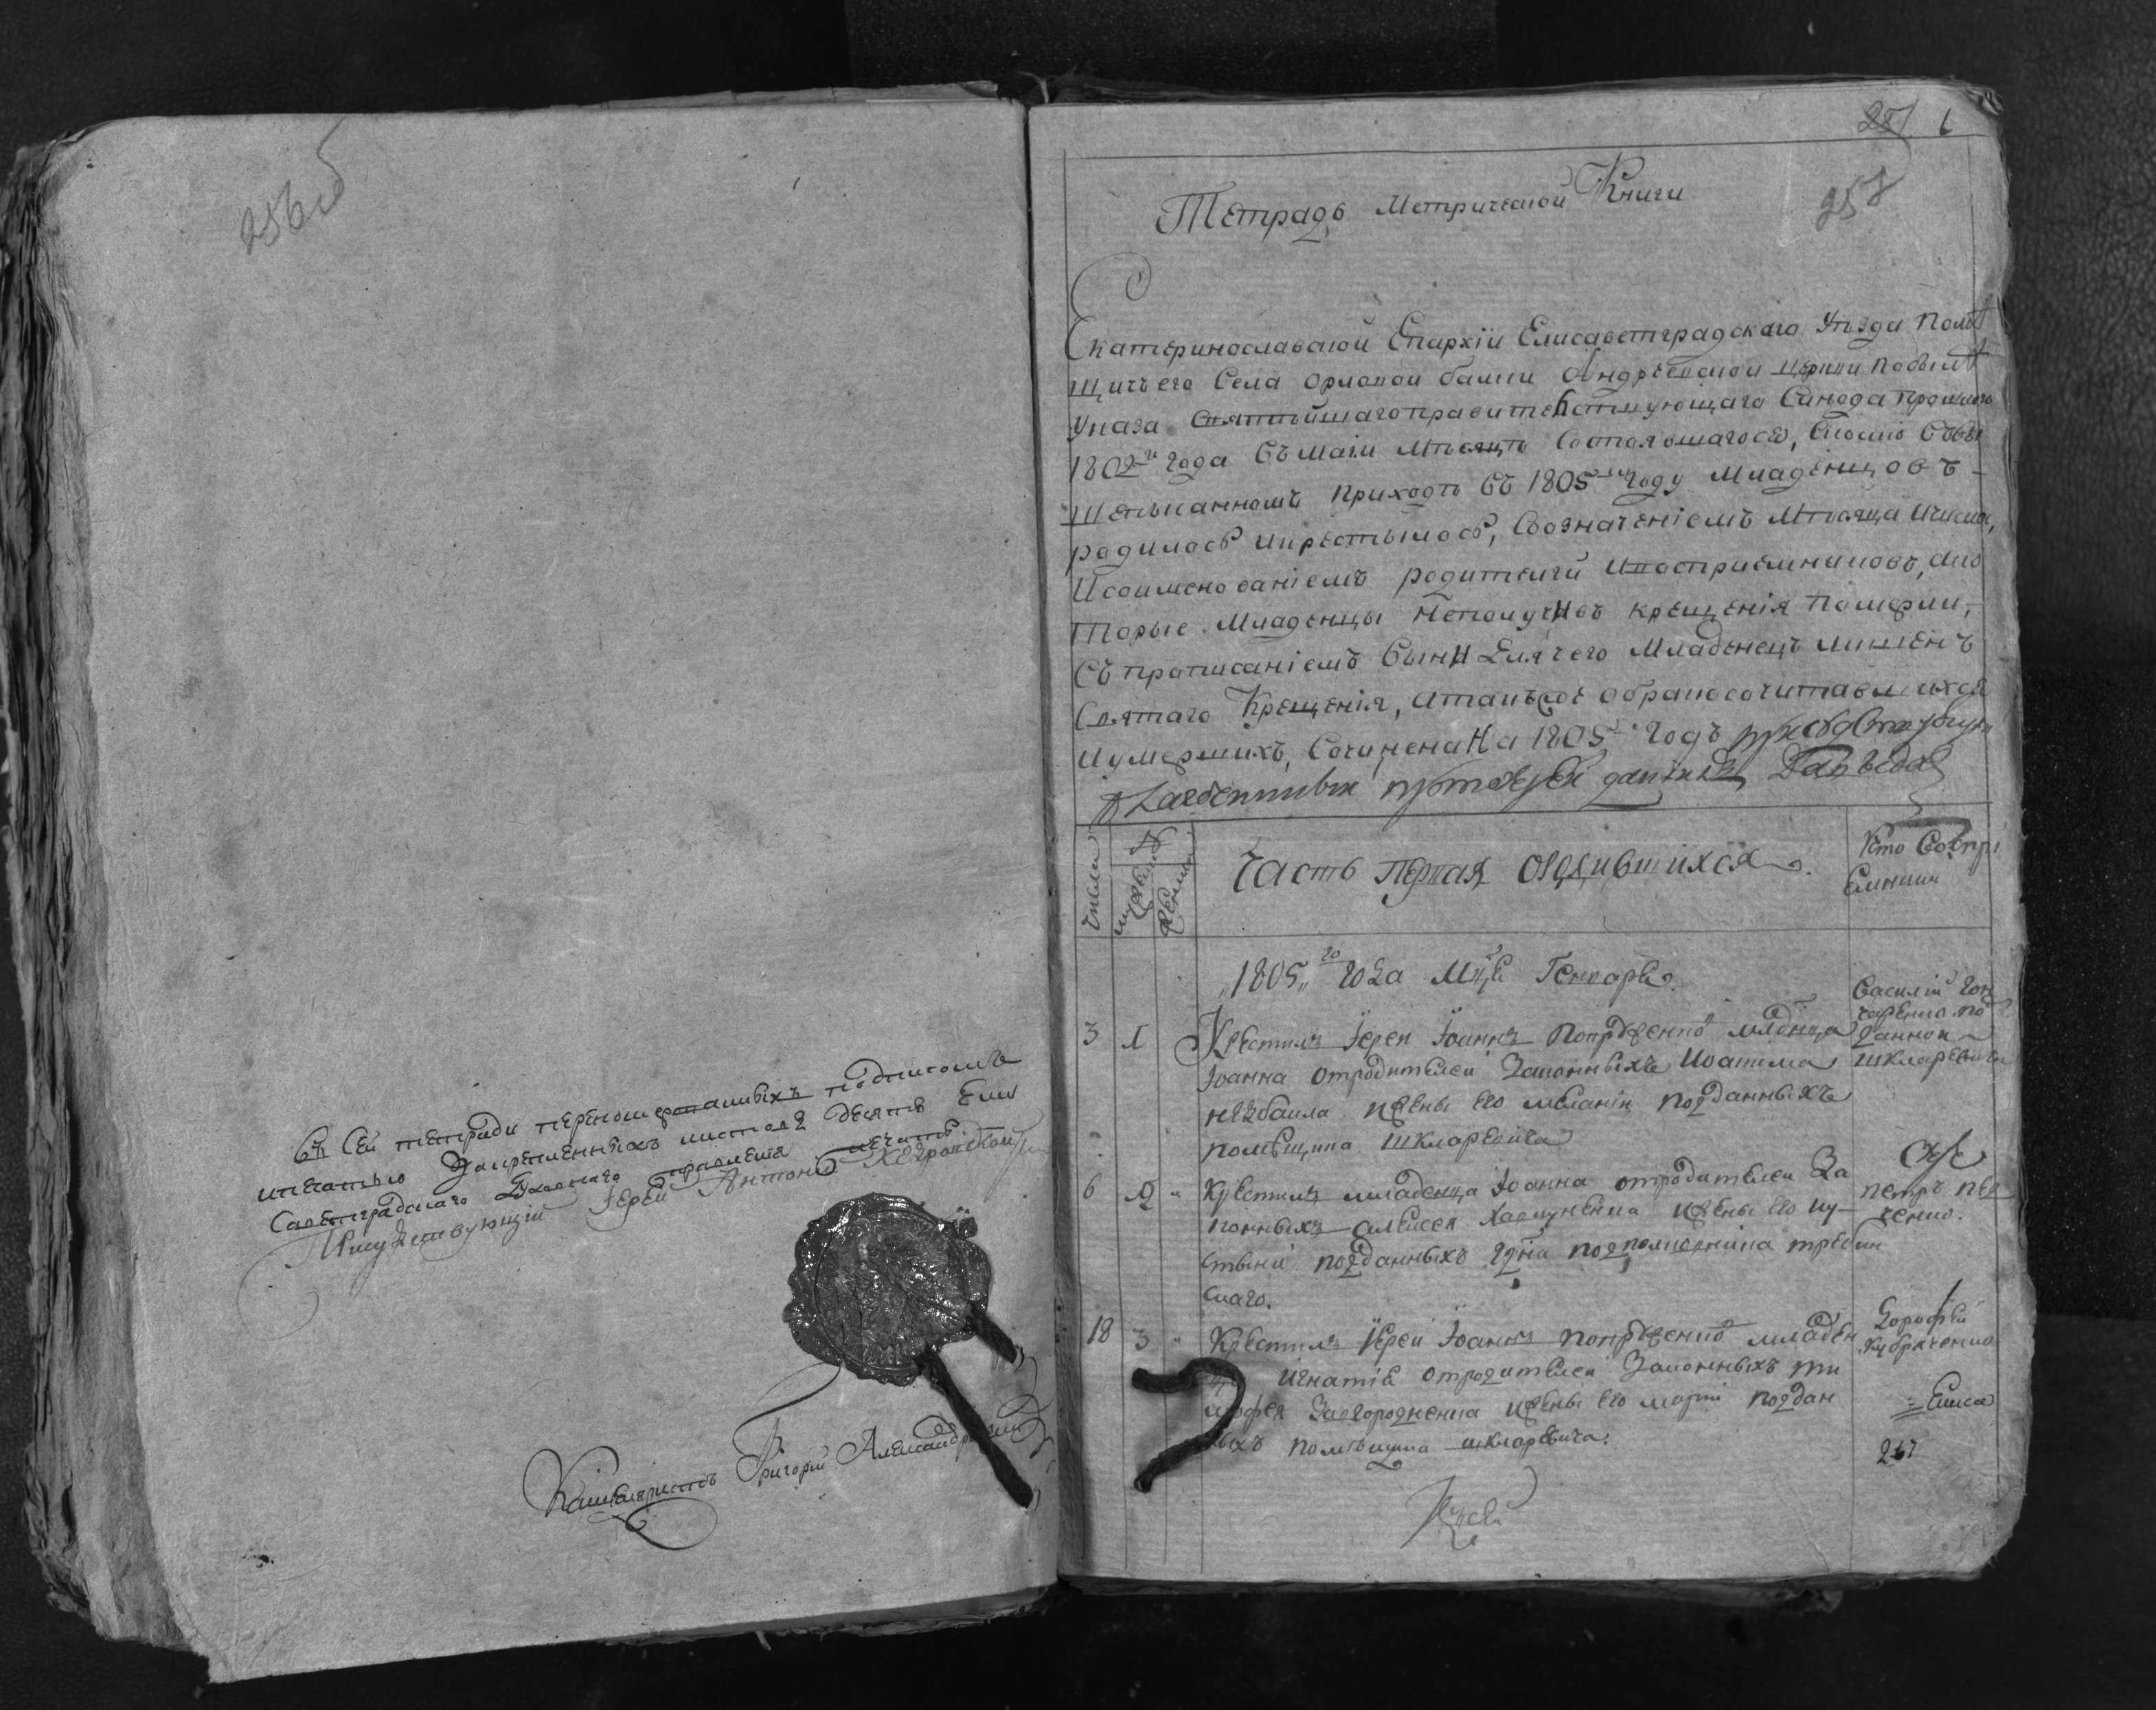 256 об
Въ Сей тетради перенумерованныхъ подписомъ
и печатью Закрепленныхъ листовъ десять Ели
Саветградского Духовного правления печать.
Присудствующій Іерей Антоній
Канцеляристъ Григорій Александровскій
1
257
Тетрадь Метрической Книги
Екатеринославской Епархіи Елисаветградского Уѣзда Помѣ
щичьего Села Орловой балки Андреевской церкви по силѣ
Указа Святѣйшаго правительствующаго Синода прошлаго
1802го Года Въ маіи Мѣсяцѣ Состоявшагося, Сколко Въ вы
шеписанномъ приходѣ Въ 1805мъ Году Младенцовъ
родилось и крестилось, Со означеніемъ Мѣсяца и числа,
И со именованіемъ родителей и воспріемниковъ, и ко
торые Младенцы Неполучивъ крещенія Померли,
Съ прописаніемъ Вины Для чего Младенецъ лишенъ
Святаго Крещенія, а также о бракосочитавшихся
И умершихъ, Сочинена На 1805й Годъ
числа
мужеска
женска
Часть Первая О родившихся.
Кто Воспрі
емники
„1805„го года Мца Генваря.
3 1 Крестилъ Іерей Іоаннъ младенца
Іоанна отродителей Законныхъ Иоакима
и жены его меланіи подданныхъ
помѣщика шкларевича
Василій Гон
чаренко по
данной
шкларевича
6 2 „ Крестилъ младенца Іоанна отродителей За
конныхъ алексея и жены его иу
стыни подданныхъ Гдна подполковника требин
скаго.
петръ
ченко.
18 3 „ Крестилъ Іерей Іоаннъ младен
ца Игнатія отродителей Законныхъ ти
мофея Загородненка и жены его маріи поддан
ныхъ помѣщика шкларевича.
Дорофѣй
= Елиса
267